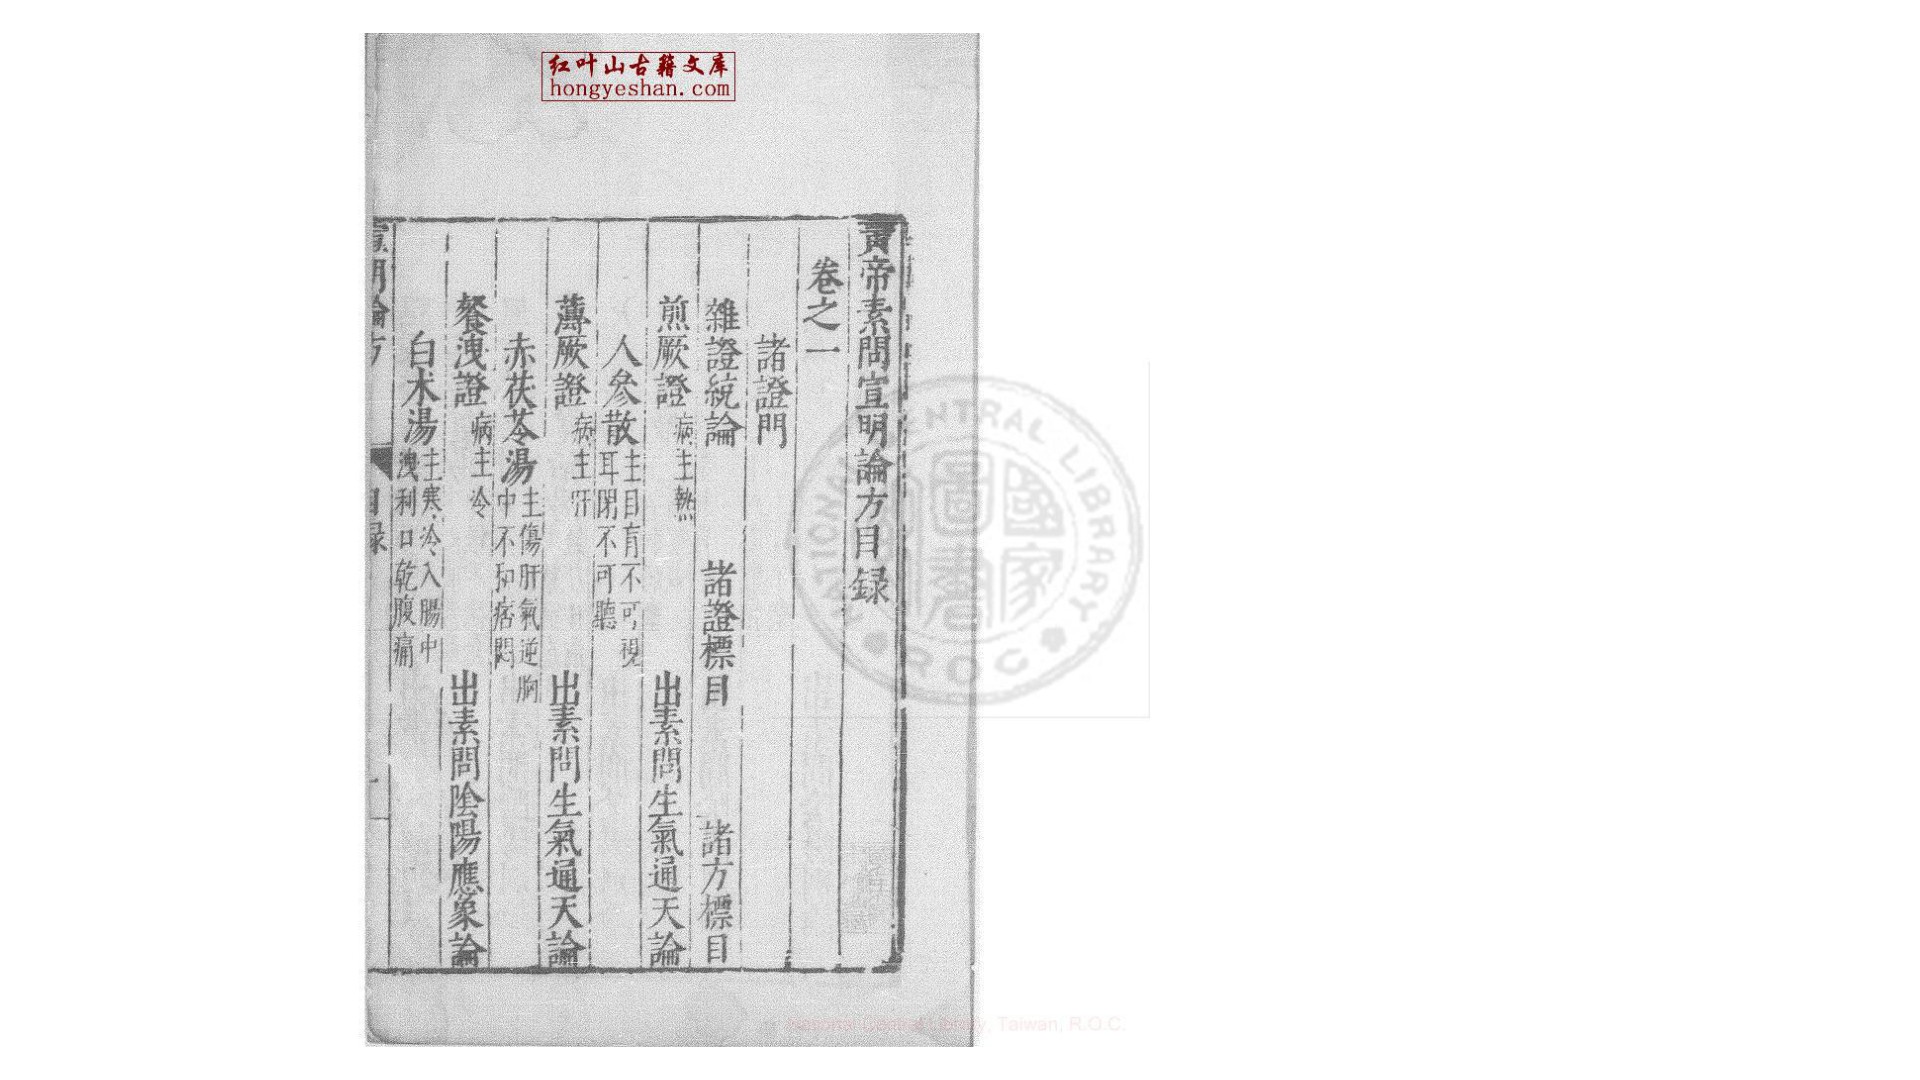 红叶山古籍文库
hongyeshan.com
黃帝素問宣明論方目録
卷之一
諸證門
雜證統論 諸證標目 諸方標目
煎厥證 病主熱 出素問生氣通天論
人參散 主目盲不可視 耳閉不可聽
薄厥證 病主肝 出素問生氣通天論
赤茯苓湯 主傷肝氣逆胸 中不和痞悶
飱洩證 病主冷 出素問陰陽應象論
白朮湯 主寒冷入腸中 洩利口乾腹痛
宣明論方 目録
NATIONAL CENTRAL LIBRARY
R O C
國家圖書
National Central Library, Taiwan, R.O.C.